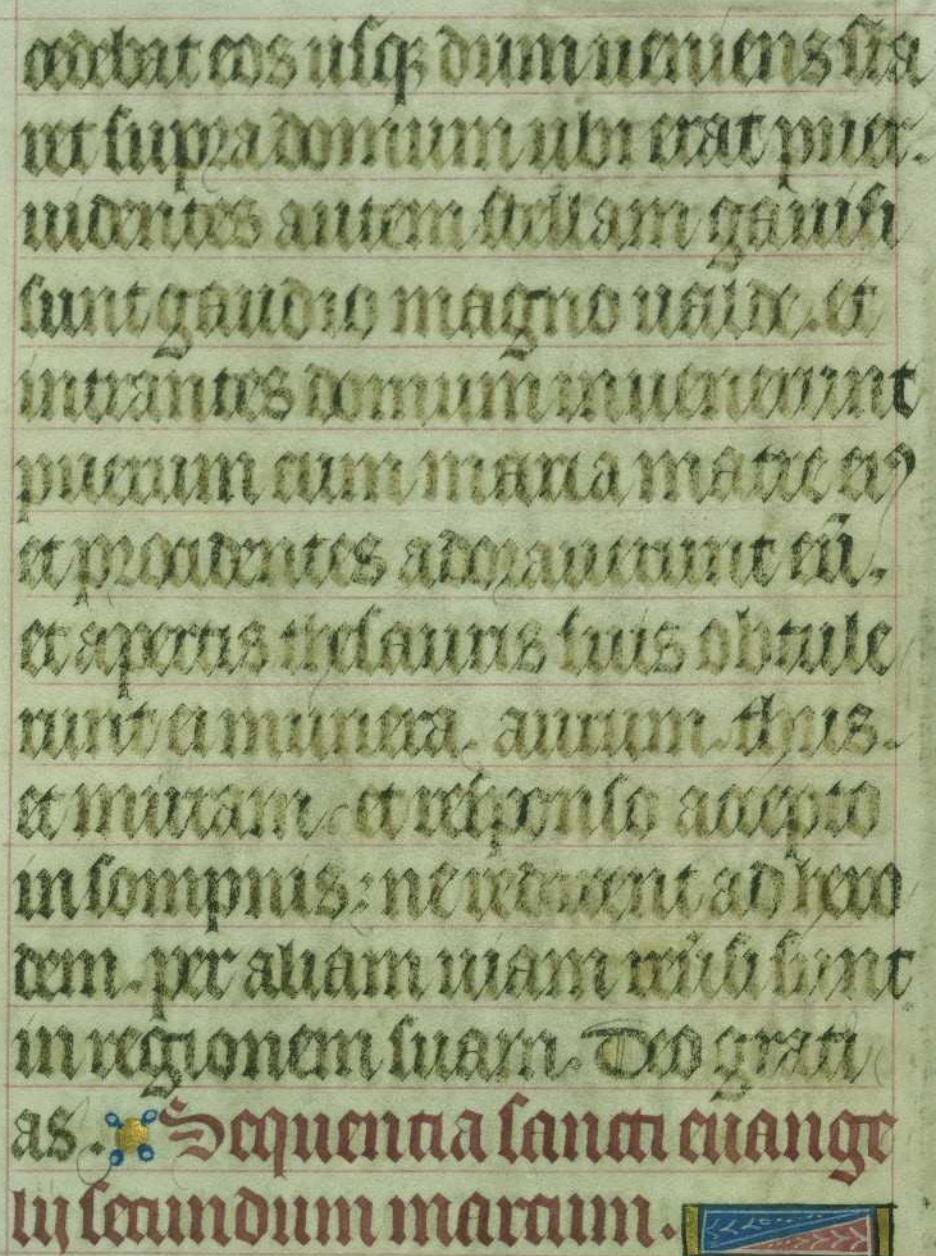 cedebat eos usq; dum ueniens sta
ret supra domum ubi erat puer.
uidentes autem stellam gauisi
sunt gaudio magno ualde. et
intrantes domum inuenerunt
puerum cum maria matre eiꝰ
et procidentes adorauerunt eū.
et apertis thesauris suis obtule
runt ei munera. aurum. thus.
et mirram. et responso accepto
in sompnis: ne redirent ad hero
dem. per aliam uiam reũsi sunt
in regionem suam. Deo grati
as. Sequentia sancti euange
lij secundum marcum.